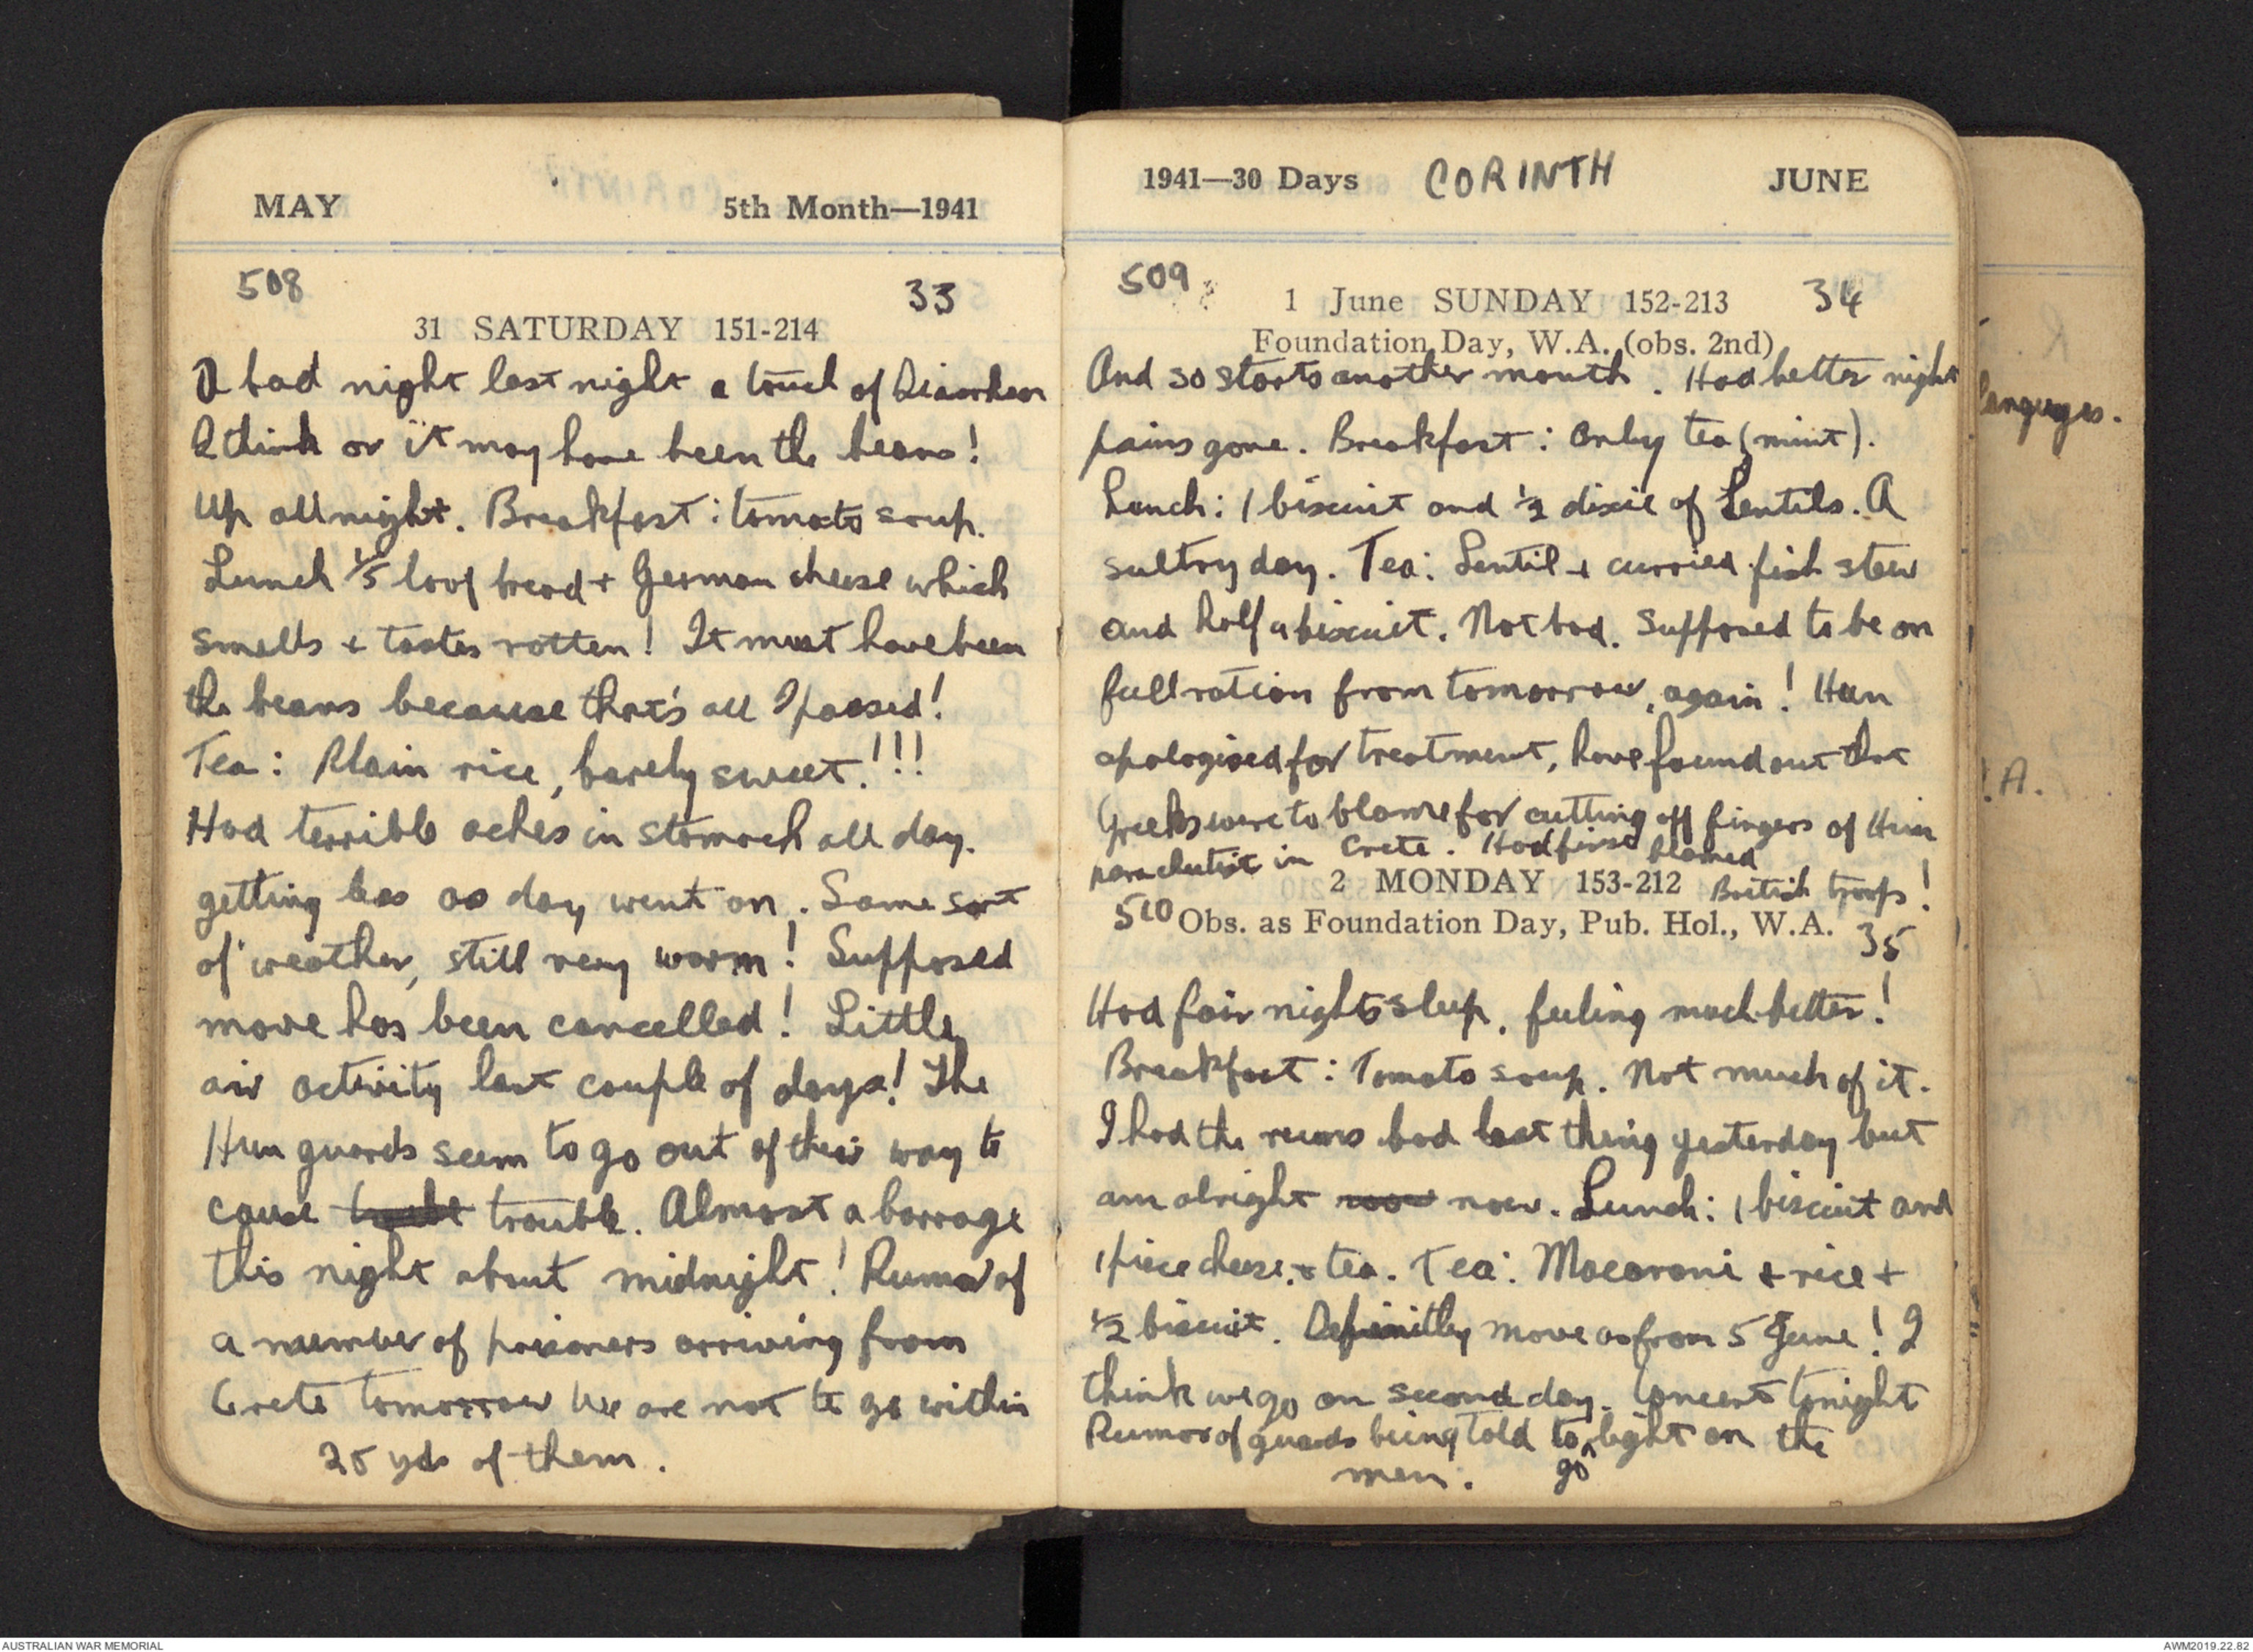 MAY 5th Month—1941
508 33
31 SATURDAY 151-214
A bad night last night a touch of Diaorhea
I think or it may have been the beans!
Up all night. Breakfast: tomato soup.
Lunch 1/5 loaf bread + German cheese which
smells + tastes rotten! It must have been
the beans because that's all I passed!
Tea: Plain rice, barely sweet.!!!
Had terrible aches in stomach all day.
getting less as day went on. Same sort
of weather, still very warm! Supposed
move has been cancelled! Little
air activity last couple of days! The
Hun guards seem to go out of their way to
cause trouble. Almost a barrage
this night about midnight! Rumor of
a number of prisoners arriving from
Crete tomorrow We are not to go within
25 yds of them.
1941—30 Days CORINTH JUNE
509 34
1 June SUNDAY 152-213
Foundation Day, W.A. (obs. 2nd)
And so starts another month. Had better night
pains gone. Breakfast: Only tea (mint).
Lunch: 1 biscuit and 1/2 dixie of Lentils. A
sultry day. Tea: Lentil + curried fish stew
and half a biscuit. Not bad. Supposed to be on
full ration from tomorrow, again! Hun
apologised for treatment, have found out that
Greeks were to blame for cutting off fingers of Hun
parachutist in Crete. Had first blamed
British troops!
2 MONDAY 153-212
510 Obs. as Foundation Day, Pub. Hol., W.A. 35
Had fair nights sleep, feeling much better!
Breakfast: Tomato soup. Not much of it.
I had the reums bad last thing yesterday but
am alright now now. Lunch: 1 biscuit and
1 piece cheese, + tea. Tea: Macaroni + rice +
1/2 biscuit. Definitley move as from 5 June! I
think we go on second day. Concert tonight
Rumor of guards being told to go light on the
men.
languages.
.A.
AUSTRALIAN WAR MEMORIAL AWM2019.22.82